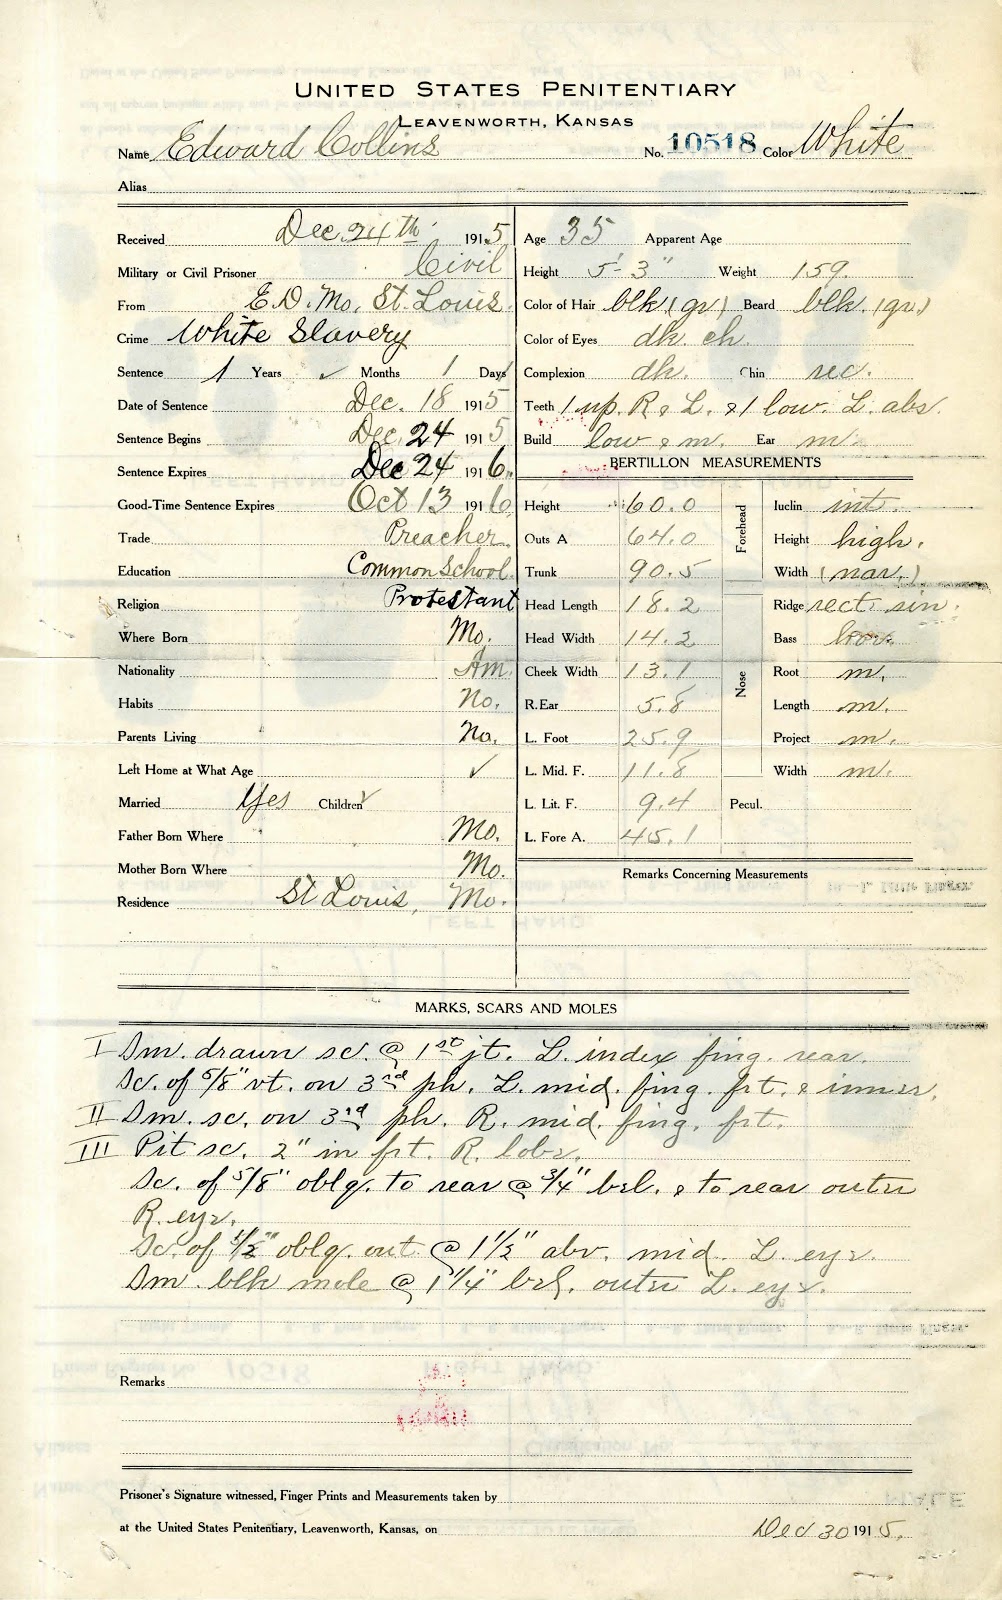 UNITED STATES PENITENTIARY
LEAVENWORTH, KANSAS
Name Edward Collins No. 10518 Color White
Alias
Received Dec. 24th 1915
Military or Civil Prisoner Civil
From E.D. Mo. St. Louis.
Crime White Slavery
Sentence 1 Years ✓ Months 1 Days
Date of Sentence Dec. 18 1915
Sentence Begins Dec. 24 1915
Sentence Expires Dec 24 1916.
Good-Time Sentence Expires Oct 13 1916
Trade Preacher.
Education Common School.
Religion Protestant
Where Born Mo.
Nationality Am.
Habits No.
Parents Living No.
Left Home at What Age ✓
Married Yes Children ✓
Father Born Where Mo.
Mother Born Where Mo.
Residence St Louis, Mo.
Age 35 Apparent Age
Height 5'-3" Weight 159.
Color of Hair blk (gr) Beard blk. (gr.)
Color of Eyes dk ch.
Complexion dk. Chin rec.
Teeth 1 up. R & L. & 1 low. L. abs.
Build low & m. Ear m
BERTILLON MEASUREMENTS
Height 60.0
Outs A 64.0
Trunk 90.5
Head Length 18.2
Head Width 14.2
Cheek Width 13.1
R. Ear 5.8
L. Foot 25.9
L. Mid. F. 11.8
L. Lit. F. 9.4
L. Fore A. 45.1
Forehead
Inclin int.
Height high.
Width (nar.)
Nose
Ridge rect. sin.
Bass hor.
Root m.
Length m.
Project m.
Width m.
Pecul.
Remarks Concerning Measurements
MARKS, SCARS AND MOLES
I Sm. drawn sc. @ 1st jt. L. index fing. rear.
Sc. of 5/8" vt. on 3rd ph. L. mid. fing. frt. & inner.
II Sm. sc. on 3rd ph. R. mid. fing. frt.
III Pit sc. 2" in frt. R. lobe.
Sc. of 5/8" oblq. to rear @ 3/4" bel. & to rear outer
R. eye.
Sc. of 1/2" oblq. out @ 1 1/2" abv. mid. L. eye.
Sm. blk mole @ 1 1/4" bel. outer L. eye.
Remarks
Prisoner's Signature witnessed, Finger Prints and Measurements taken by
at the United States Penitentiary, Leavenworth, Kansas, on Dec 30 1915.